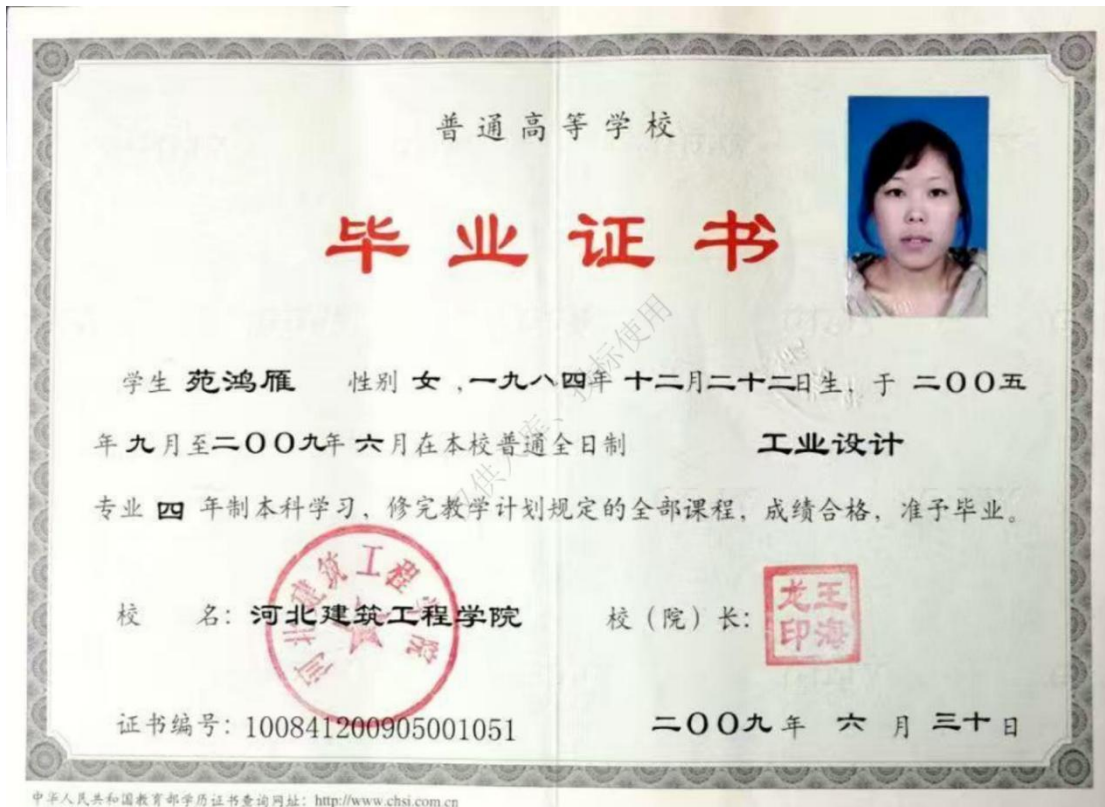 普通高等学校
毕业证书
学生 苑鸿雁 性别 女，一九八四年 十二月二十二日生，于 二〇〇五
年九月至二〇〇九年 六月在本校普通全日制 工业设计
专业 四 年制本科学习，修完教学计划规定的全部课程，成绩合格，准予毕业。
校 名：河北建筑工程学院 校（院）长：
河北建筑工程学院
王海龙印
证书编号：100841200905001051 二〇〇九年 六 月 三十日
中华人民共和国教育部学历证书查询网址：http://www.chsi.com.cn
仅供入库、投标使用